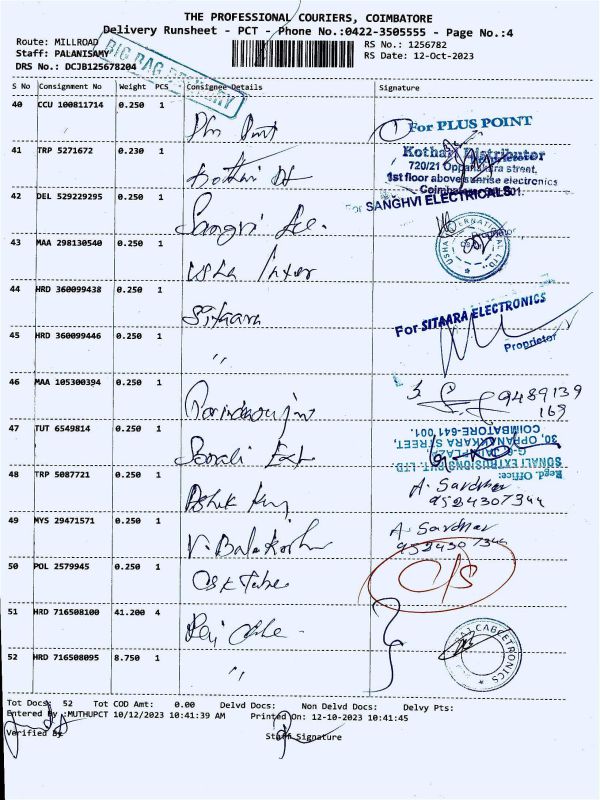 THE PROFESSIONAL COURIERS, COIMBATORE
Delivery Runsheet - PCT - Phone No.:0422-3505555 - Page No.:4
Route: MILLROAD
RS No.: 1256782
Staff: PALANISAMY
RS Date: 12-Oct-2023
DRS No.: DCJB125678204
BIG BAG DELIVERY
S No Consignment No Weight PCS Consignee Details Signature
40 CCU 100811714 0.250 1
For PLUS POINT
41 TRP 5271672 0.230 1
Kothari Distributor
Proprietor
720/21 Oppanakara street,
1st floor above sunrise electronics
Kothari
42 DEL 529229295 0.250 1
For SANGHVI ELECTRICALS
Sangvi
43 MAA 298130540 0.250 1
Usha Inter
44 HRD 360099438 0.250 1
Sitaara
For SITAARA ELECTRONICS
Proprietor
45 HRD 360099446 0.250 1
"
46 MAA 105300394 0.250 1
9489139
169
47 TUT 6549814 0.250 1
Sonali Ext
Regd. Office:
SONALI EXTRUSIONS PVT. LTD.
30, OPPANAKKARA STREET,
COIMBATORE-641 001.
48 TRP 5087721 0.250 1
Ashik
A. Sardhar
9524307344
49 MYS 29471571 0.250 1
V. Balakrishn
A. Sardhar
9524307344
50 POL 2579945 0.250 1
CSK Tubes
C/S
51 HRD 716508100 41.200 4
52 HRD 716508095 8.750 1
"
CABCETRONICS
Tot Docs: 52 Tot COD Amt: 0.00 Delvd Docs: Non Delvd Docs: Delvy Pts:
Entered By :MUTHUPCT 10/12/2023 10:41:39 AM Printed On: 12-10-2023 10:41:45
Verified By Staff Signature